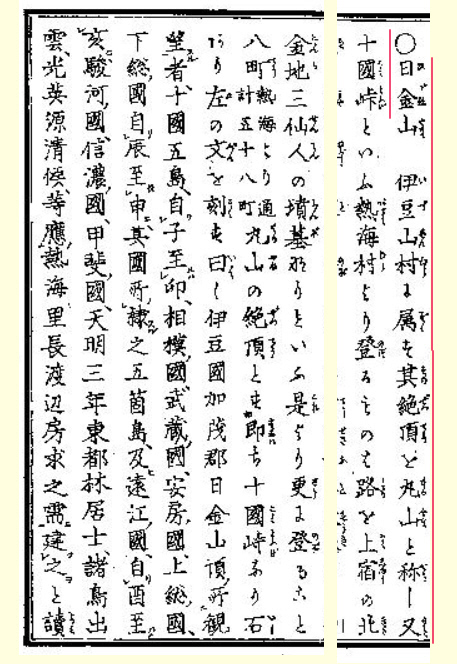 〇日金山 伊豆山村に属す其絶頂を丸山と称し又
十國峠といふ熱海村より登るものは路を上宿の
金地三仙人の墳墓なりといふ是より更に登ること
八町熱海より通計五十八町丸山の絶頂とす即ち十國峠なり石
あり左の文を刻す曰く伊豆國加茂郡日金山頂所觀
望者十國五島自子至卯相模國武蔵國安房國上総國
下総國自辰至申其國所隷之五箇島及遠江國自酉至
亥駿河國信濃國甲斐國天明三年東都林居士諸鳥出
雲光英源清候等應熱海里長渡辺房求之需建之と讀